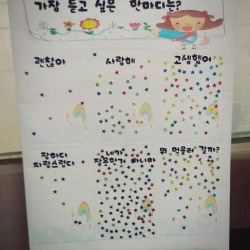 가장 듣고 싶은 한마디는?
괜찮아
사랑해
고생했어
잘하다
자랑스럽다
네가
잘못한게 아니야
뭐 먹으러 갈까?